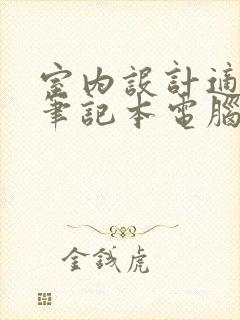 室內設計適
筆記本電腦
金錢虎